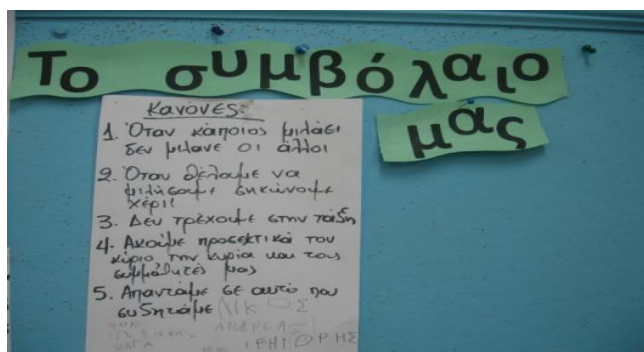 Το συμβόλαιο
μας
Κανόνες:
1. Όταν κάποιος μιλάει
δεν μιλάνε οι άλλοι
2. Όταν θέλουμε να
μιλήσουμε σηκώνουμε
χέρι!
3. Δεν τρέχουμε στην τάξη
4. Ακούμε προσεκτικά τον
κύριο την κυρία και τους
συμμαθητές μας
5. Απαντάμε σε αυτό που
συζητάμε ΝΙΚΟΣ
ΑΝΔΡΕΑΣ
ΓΡΗΓΟΡΗΣ